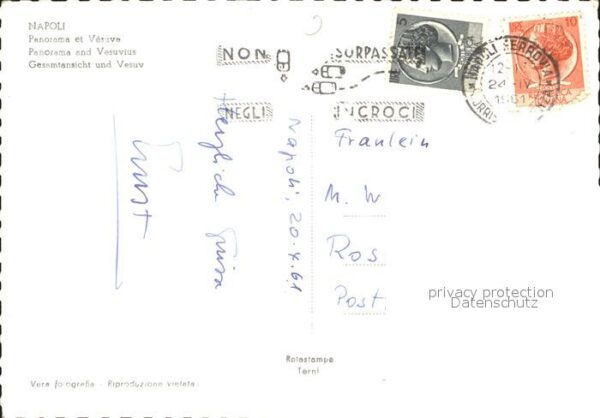 NAPOLI
Panorama et Vésuve
Panorama and Vesuvius
Gesamtansicht und Vesuv
NON SORPASSATE
NEGLI INCROCI
5
10
NAPOLI FERROVIA
24 IV
1961
Napoli, 20.4.61
Herzliche Grüsse
Ernst
Fräulein
M. W
Ros
Post
privacy protection
Datenschutz
Rotostampa
Terni
Vera fotografia - Riproduzione vietata